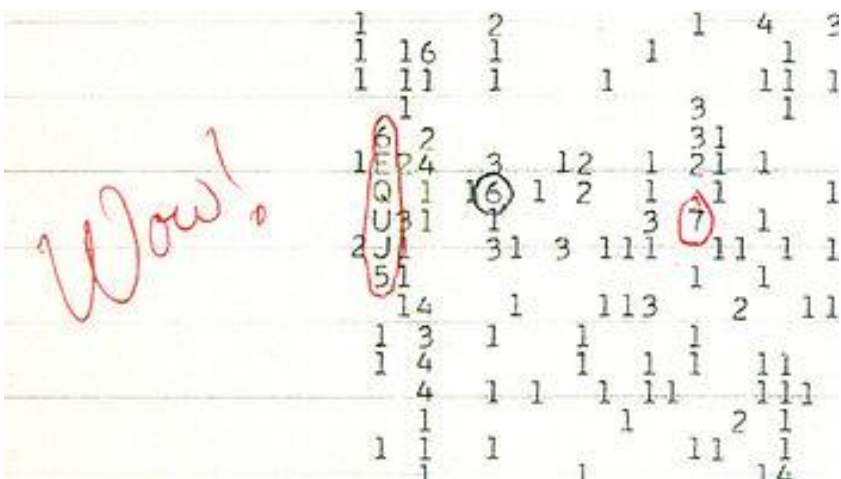 1 2 1 4 3
1 16 1 1 1
1 11 1 1 11 1
1 3 1
6 2 31
1 E 24 3 12 1 21 1
Q 1 16 1 2 1 1 1
Wow!
U31 1 3 7 1
2J1 31 3 111 11 1 1
51 1 1
14 1 113 2 11
1 3 1 1 1
1 4 1 1 1 11
4 1 1 1 11 111
1 1 2 1
1 1 1 11 1
1 1 14